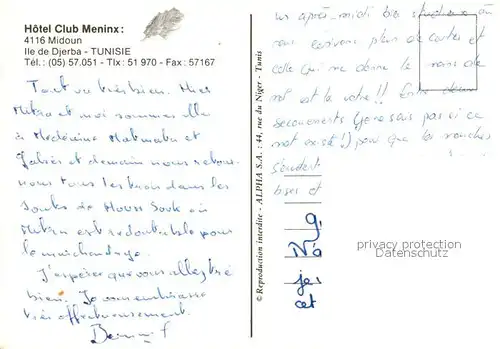 Hôtel Club Meninx :
4116 Midoun
Ile de Djerba - TUNISIE
Tél. : (05) 57.051 - Tlx : 51 970 - Fax : 57167
Tout va très bien. Hier
et moi sommes allé
à Medénine Matmata et
Gabès et demain nous
tous les trois dans les
Souks de Houmt Souk où
est redoutable pour
le marchandage.
J'espère que vous allez très
bien. Je vous embrasse
très affectueusement.
© Reproduction interdite - ALPHA S.A. : 44, rue du Niger - Tunis
après-midi studieux où
nous écrivons plein de cartes et
celle qui me donne le moins de
mal est la vôtre !! Entre deux
(je ne sais pas si ce
mot existe !) pour que les mouches
bises et
g.
Na
je,
cet
privacy protection
Datenschutz